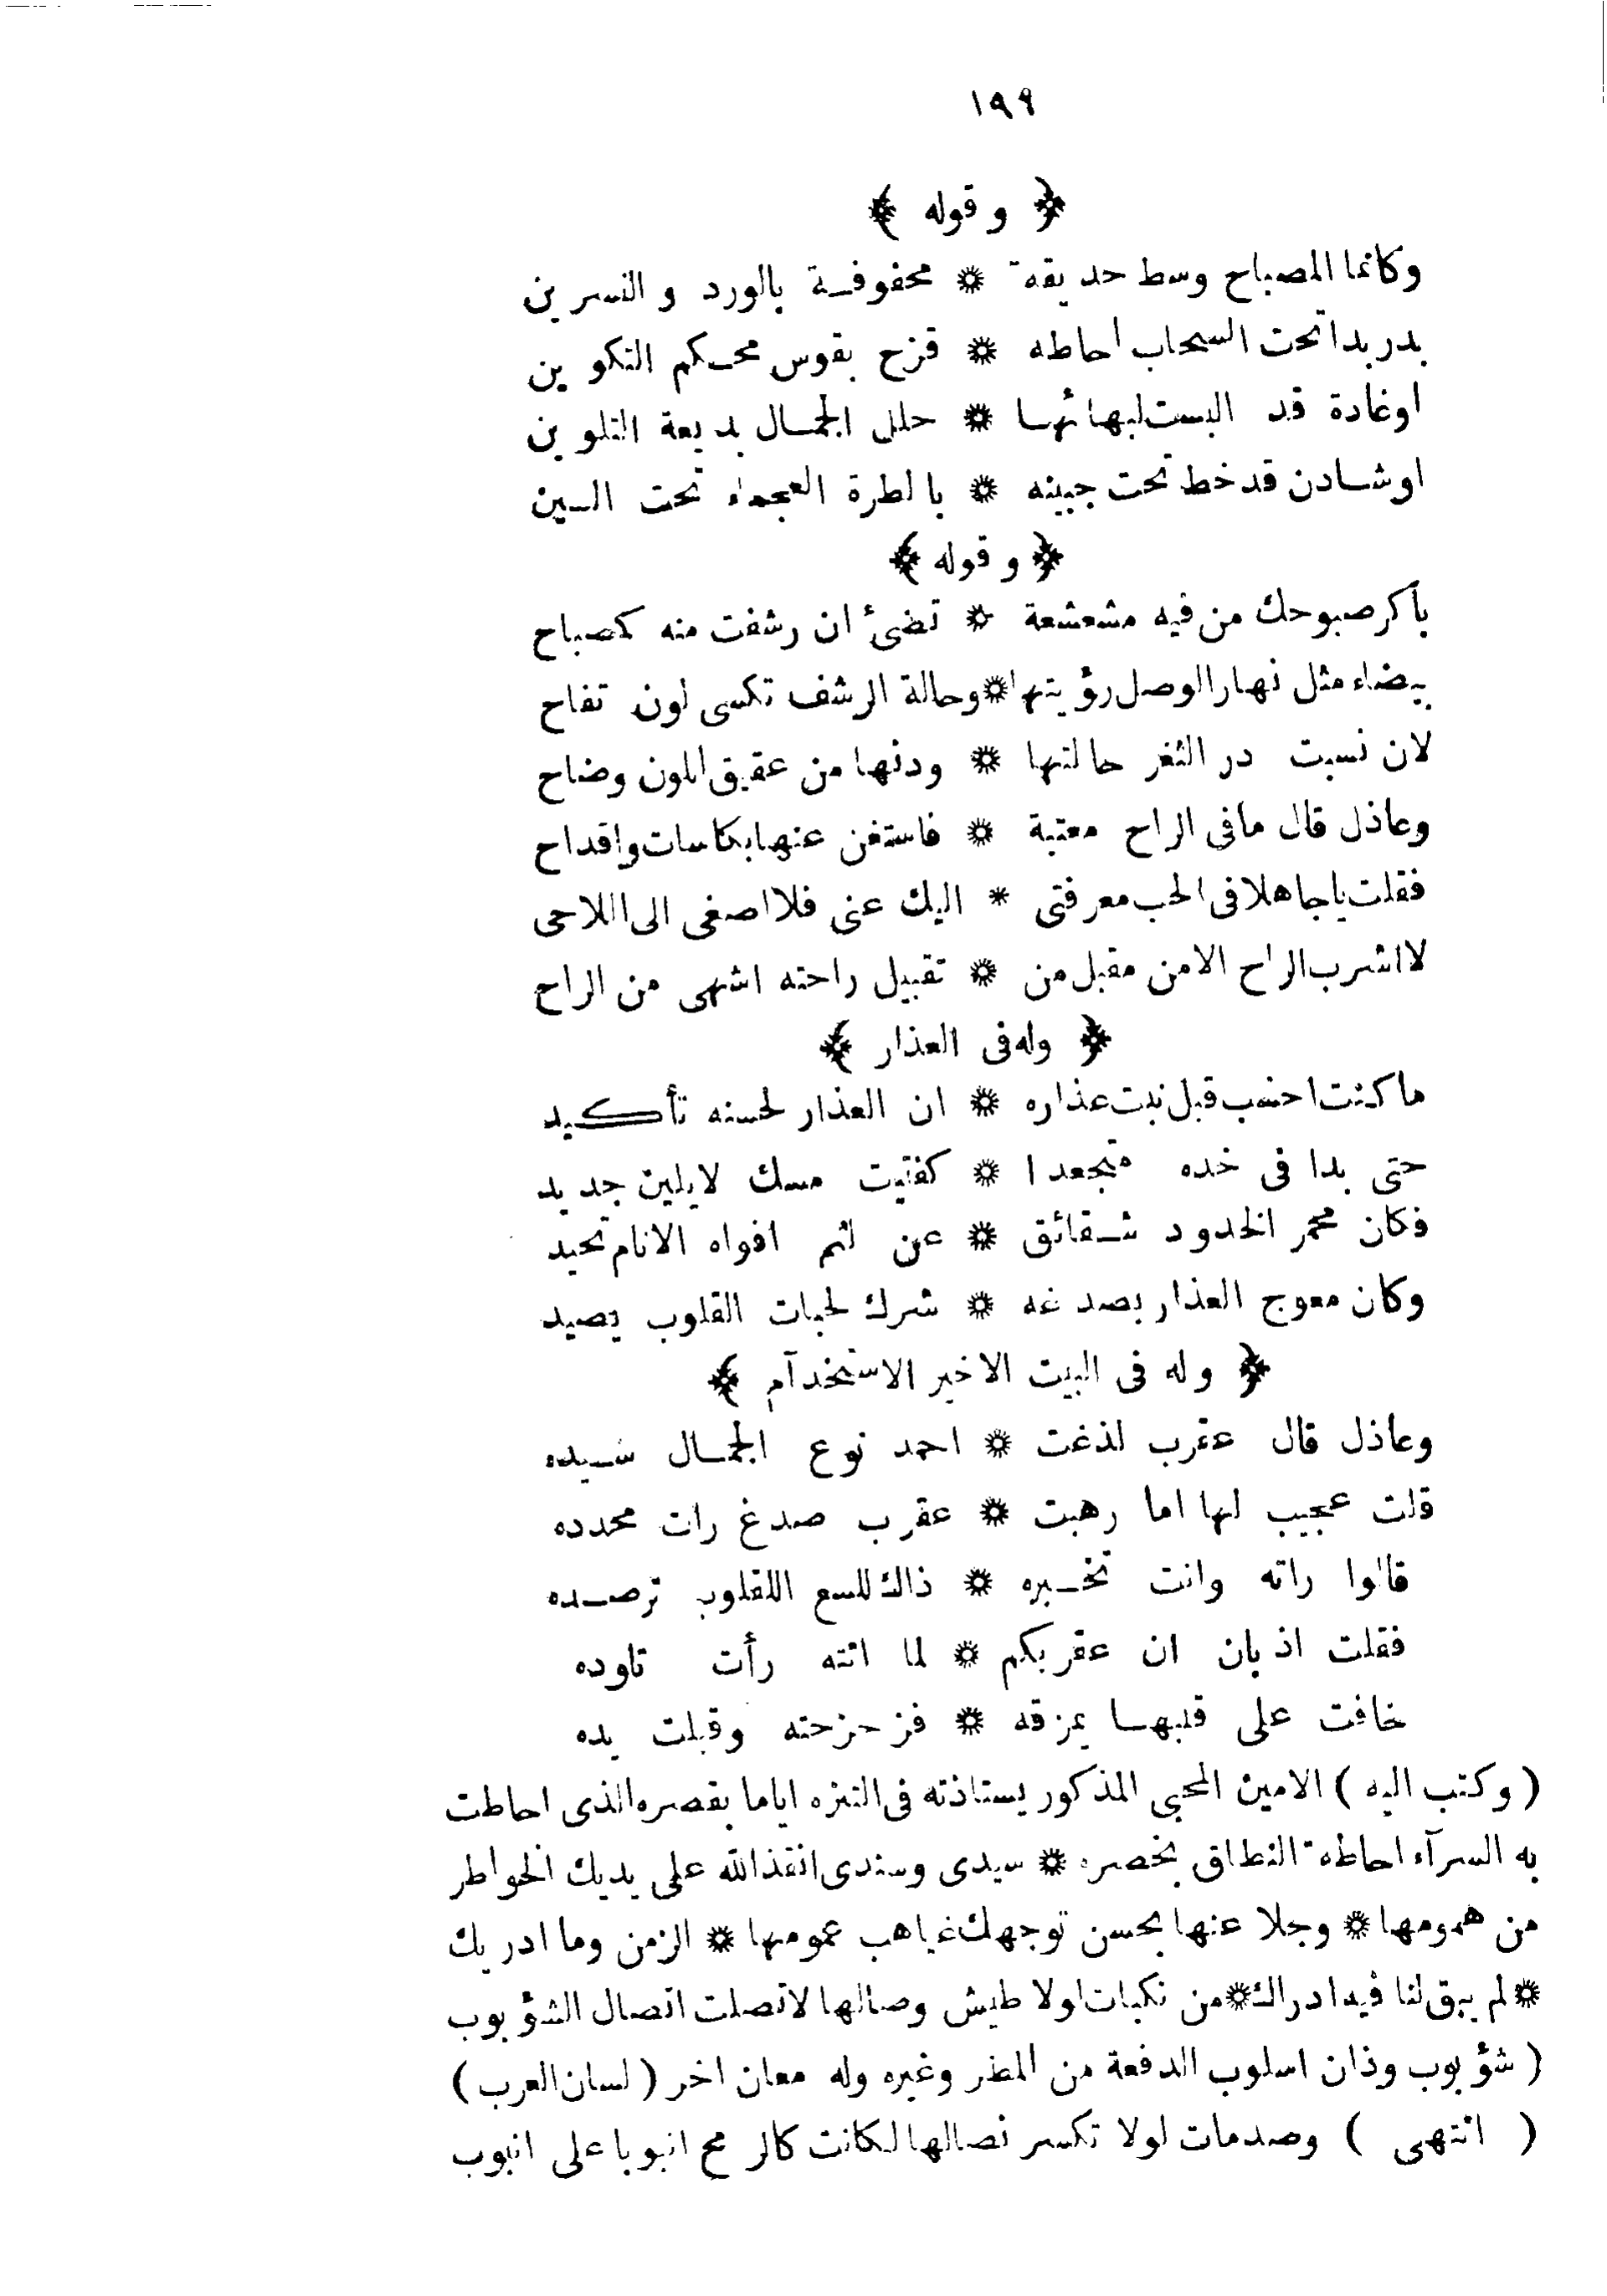 ١٩٩
﴿ وقوله ﴾
وكانما المصباح وسط حديقة * محفوفة بالورد والنسرين
بدر بدا تحت السحاب احاطه * قزح بقوس محكم التكوين
اوغادة قد البست لبهائها * حلل الجمال بديعة التلوين
اوشادن قد خط تحت جبينه * بالطرة العجماء تحت السين
﴿ وقوله ﴾
باكر صبوحك من فيه مشعشعة * تضئ ان رشفت منه كمصباح
بيضاء مثل نهار الوصل رؤيتها * وحالة الرشف تكسى لون تفاح
لان نسبت در الثغر حالتها * ودنها من عقيق اللون وضاح
وعاذل قال مافى الراح معتبة * فاستغن عنها بكاسات واقداح
فقلت ياجاهلا فى الحب معرفتى * اليك عنى فلا اصغى الى اللاحى
لا اشرب الراح الا من مقبل من * تقبيل راحته اشهى من الراح
﴿ وله فى العذار ﴾
ما كنت احسب قبل نبت عذاره * ان العذار لحسنه تأكيد
حتى بدا فى خده متجعدا * كفتيت مسك لايلين جديد
فكان محمر الخدود شقائق * عن لثم افواه الانام تحيد
وكان معوج العذار بصدغه * شرك لحبات القلوب يصيد
﴿ وله فى البيت الاخير الاستخدآم ﴾
وعاذل قال عقرب لذغت * احمد نوع الجمال سيده
قلت عجيب لها اما رهبت * عقرب صدغ رات محدده
قالوا راته وانت تخبره * ذاك للسع اللقلوب ترصده
فقلت اذ بان ان عقربكم * لما اتته رأت تاوده
خافت على قلبها يمزقه * فزحزحته وقبلت يده
( وكتب اليه ) الامين المحبى المذكور يستاذنه فى التنزه اياما بقصره الذى احاطت
به السرآء احاطة النطاق بخصره * سيدى وسندى انقذ الله على يديك الخواطر
من همومها * وجلا عنها بحسن توجهك غياهب غمومها * الزمن وما ادريك
* لم يبق لنا فيه ادراك * من نكبات لولا طيش وصالها لاتصلت اتصال الشؤبوب
( شؤبوب وذان اسلوب الدفعة من المطر وغيره وله معان اخر ( لسان العرب )
( انتهى ) وصدمات لولا تكسر نصالها لكانت كالرمح انبوبا على انبوب